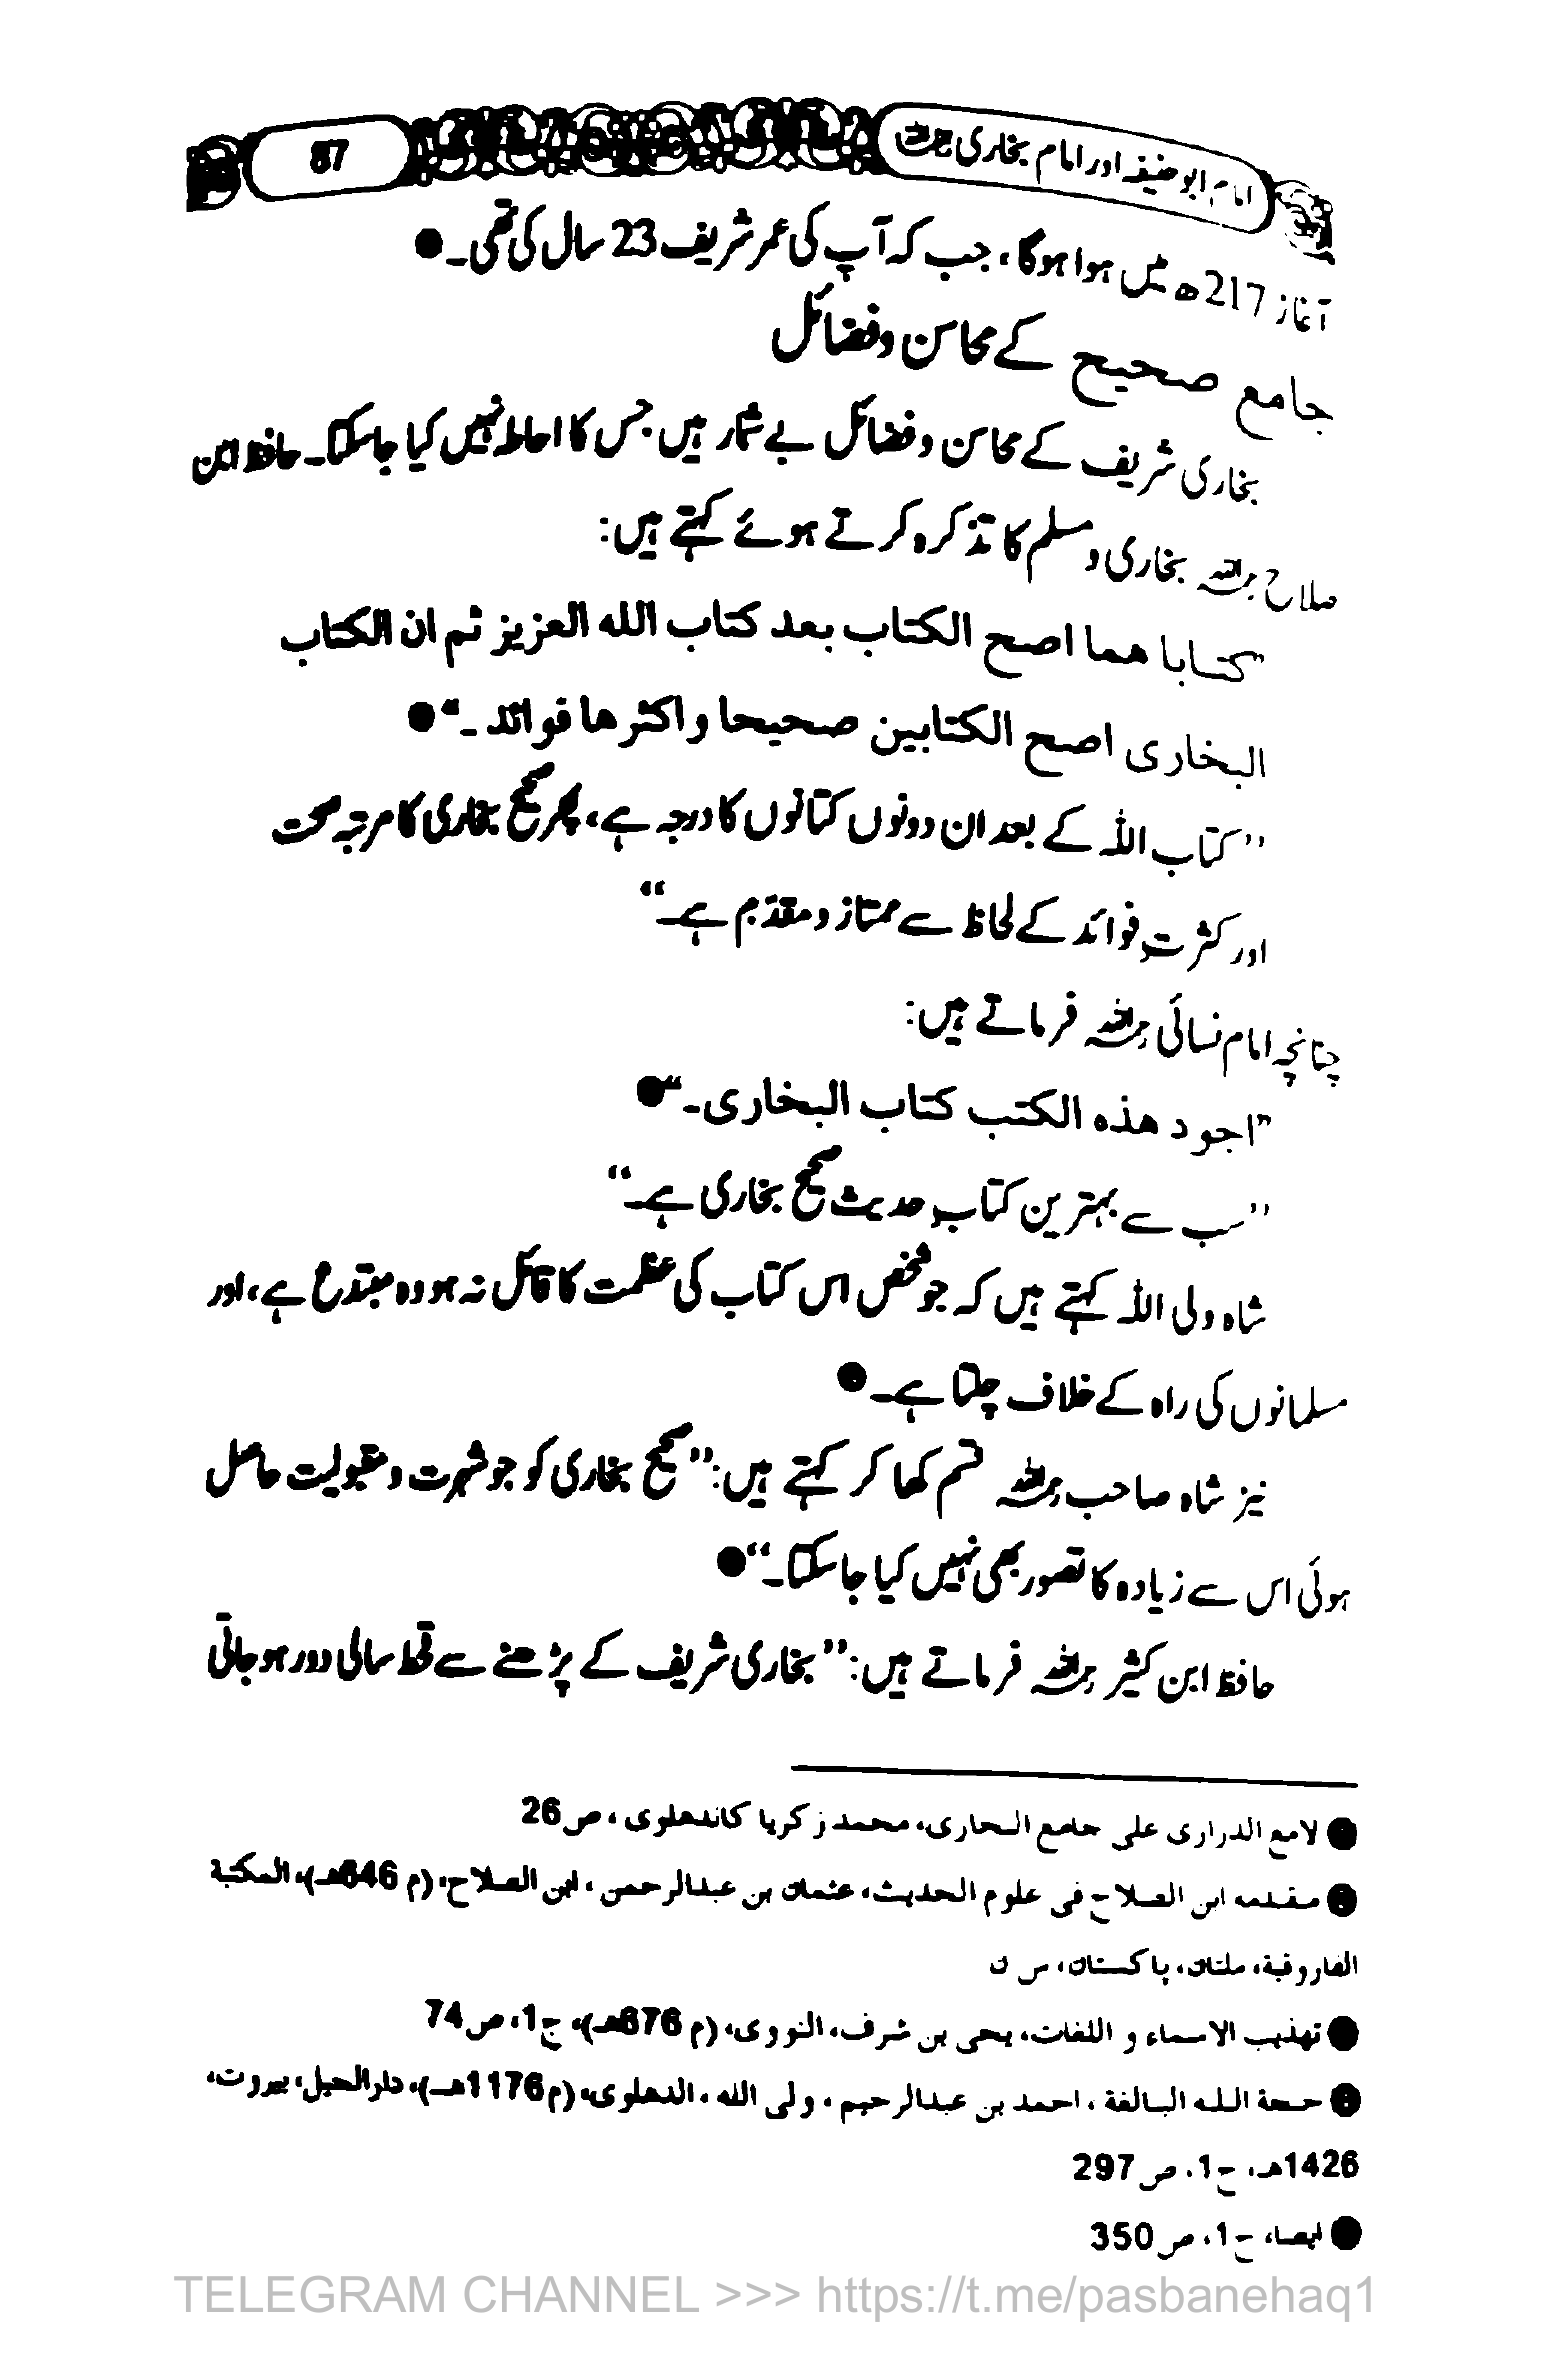 امام ابو حنیفہ اور امام بخاری
87
آغاز 217ھ میں ہوا ہوگا، جب کہ آپ کی عمر شریف 23 سال کی تھی۔
جامع صحیح کے محاسن وفضائل
بخاری شریف کے محاسن وفضائل بے شمار ہیں جس کا احاطہ نہیں کیا جاسکتا۔ حافظ ابن
صلاح رحمہ اللہ بخاری و مسلم کا تذکرہ کرتے ہوئے کہتے ہیں:
”کتابا ھما اصح الکتاب بعد کتاب اللہ العزیز ثم ان الکتاب
البخاری اصح الکتابین صحیحا واکثر ھا فوائد۔“
”کتاب اللہ کے بعد ان دونوں کتابوں کا درجہ ہے، پھر صحیح بخاری کا مرتبہ صحت
اور کثرتِ فوائد کے لحاظ سے ممتاز ومقدم ہے۔“
چنانچہ امام نسائی رحمہ اللہ فرماتے ہیں:
”اجود ھذہ الکتب کتاب البخاری۔“
”سب سے بہترین کتابِ حدیث صحیح بخاری ہے۔“
شاہ ولی اللہ کہتے ہیں کہ جو شخص اس کتاب کی عظمت کا قائل نہ ہو وہ مبتدع ہے، اور
مسلمانوں کی راہ کے خلاف چلتا ہے۔
نیز شاہ صاحب رحمہ اللہ قسم کھا کر کہتے ہیں: ”صحیح بخاری کو جو شہرت ومقبولیت حاصل
ہوئی اس سے زیادہ کا تصور بھی نہیں کیا جاسکتا۔“
حافظ ابن کثیر رحمہ اللہ فرماتے ہیں: ”بخاری شریف کے پڑھنے سے قحط سالی دور ہوجاتی
لامع الدراری علی جامع البخاری، محمد زکریا کاندھلوی، ص26
مقدمہ ابن الصلاح فی علوم الحدیث، عثمان بن عبدالرحمن، ابن الصلاح، (م 646ھ)، المکتبة
الفاروقیة، ملتان، پاکستان، س ن
تهذیب الاسماء و اللغات، یحی بن شرف، النووی، (م 676ھ)، ج1، ص74
حجة اللہ البالغة، احمد بن عبدالرحیم، ولی اللہ، الدهلوی، (م 1176ھ)، دارالجیل، بیروت،
1426ھ، ج1، ص297
ایضا، ج1، ص350
TELEGRAM CHANNEL >>> https://t.me/pasbanehaq1